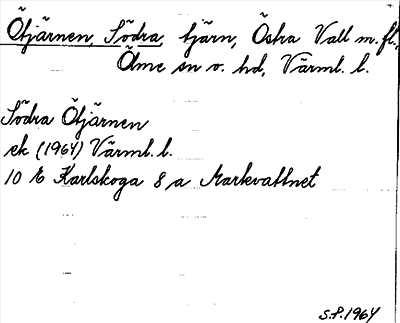 Ötjärnen, Södra, tjärn, Östra Vall m. fl.,
Ölme sn o. hd, Värml. l.
Södra Ötjärnen
ek (1964) Värml. l.
10 E Karlskoga 8 a Markvattnet
S.P. 1964